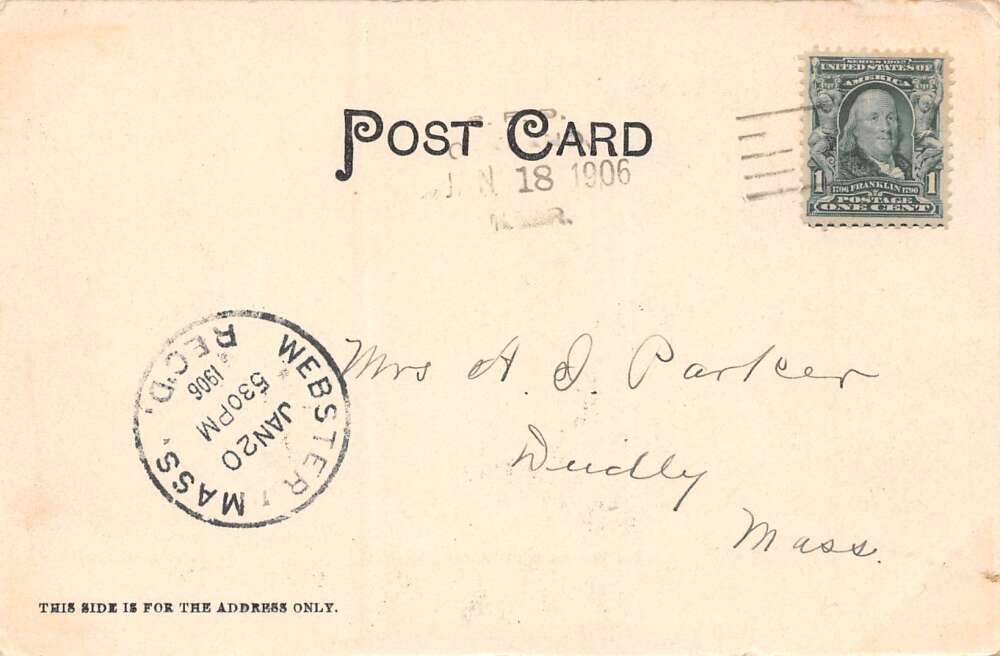 SERIES 1902
UNITED STATES OF
AMERICA
1706 FRANKLIN 1790
1 1
POSTAGE
ONE CENT
POST CARD
JAN 18 1906
WEBSTER, MASS.
REC'D.
JAN 20
530PM
1906
Mrs A J Parker
Dudlly
Mass.
THIS SIDE IS FOR THE ADDRESS ONLY.